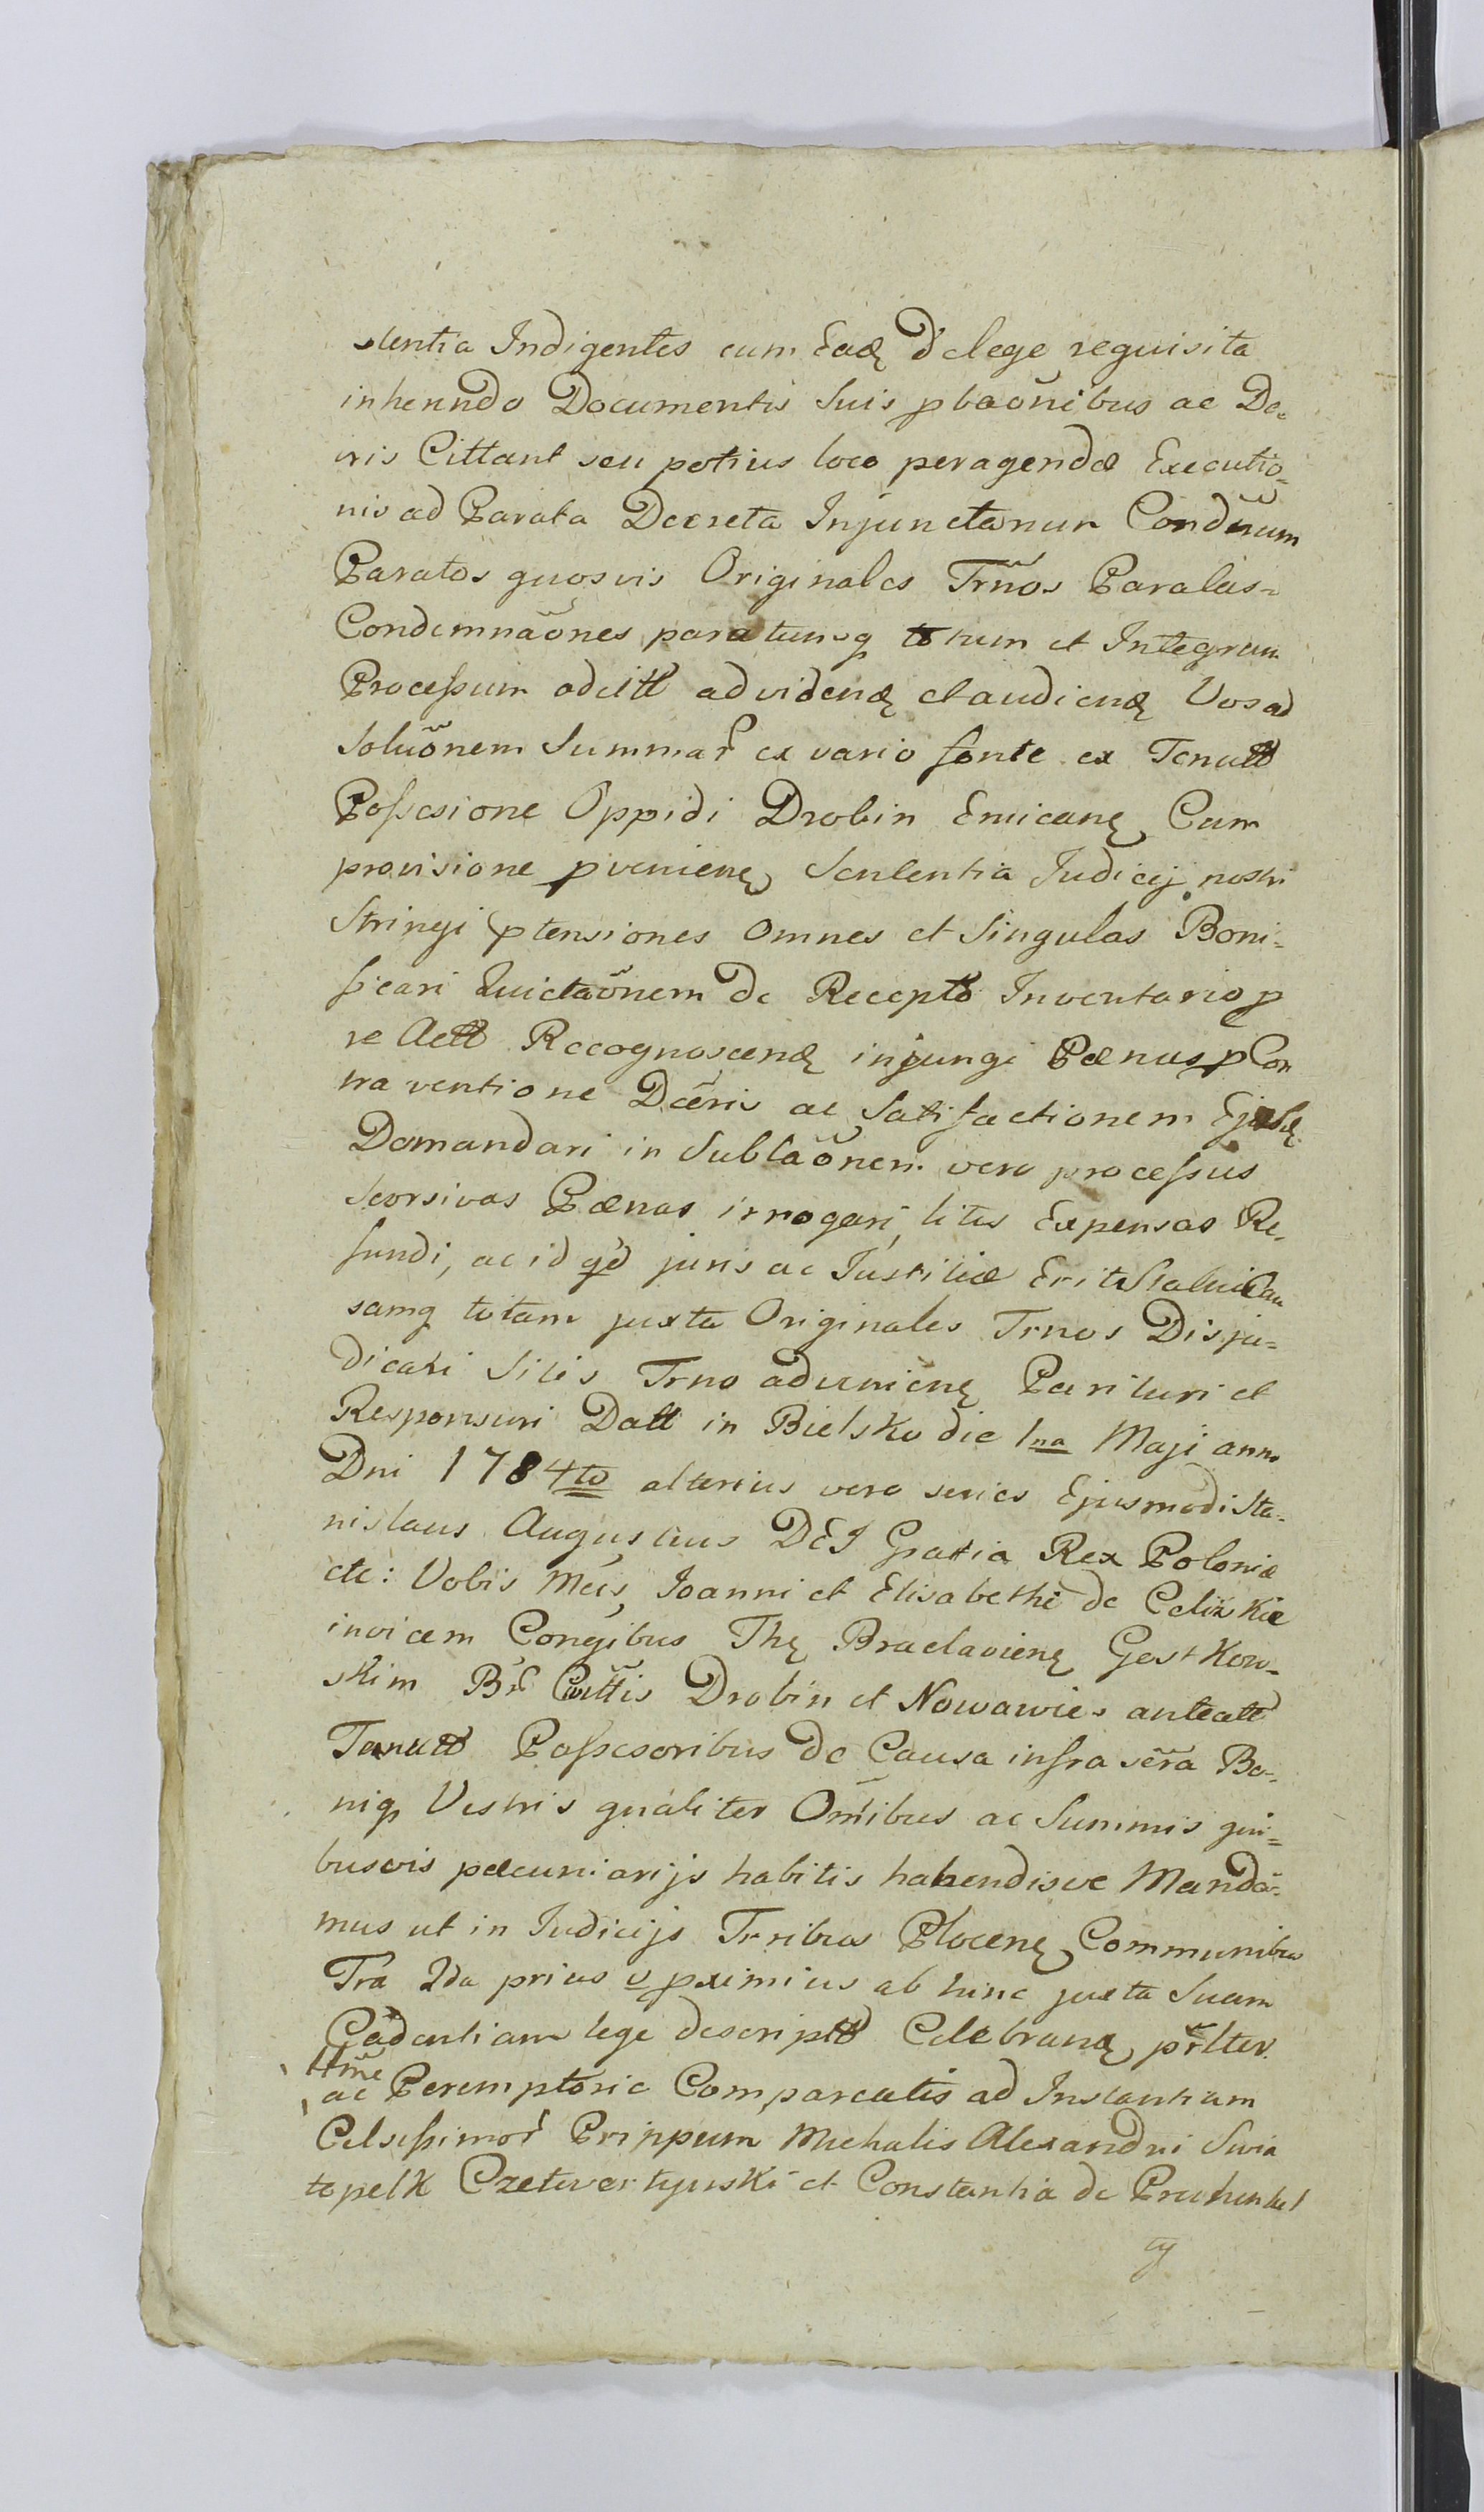 stentia Indigentes cum Eadę d'elege requisita
inhenndo Documentis Suis pbaõnibus ac De-
cris Cittant seu potius loco peragendæ Executio-
nis ad Parata Decreta Injunctorum Condnum
Paratos quosvis Originales Trnõs Paratas-
Condemnaõnes paratumq totum et Integrum
Processum aditt ad videndę et audiendę Vos ad
Soluõnem Summar ex vario fonte ex Tenutt
Possesione Oppidi Drobin Emicanę Cum
provisione pvenienę Sententia Judicij nostri
Stringi ptensiones Omnes et Singulas Boni-
ficari Quictaõnem de Recepto Inventario p
re Actt Recognoscendę injungi Pænas p Con
traventione Dæris ac Satisfactionem Ejusdę
Demandari in Sublaõnem vero processus
Seorsivas Pænas irrogari, litis Expensas Re-
fundi, ac id qd juris ac Justitiæ Erit Statui Cau
samq totam juxta Originales Trnos Disju-
dicari Sitis Trno advenienę Parituri et
Responsuri Datt in Bielsko die 1na Maji anno
Dni 1784to alterius vero series Ejusmodi Sta-
nislaus Augustus DEI Gratia Rex Poloniæ
etc: Vobis Mcis Joanni et Elisabethe de Celinskie
invicem Congibus Thę Braclavienę Gostkow-
skim Br Cuttis Drobin et Nowawies anteatt
Tenutt Possesoribus de Causa infra sera Bo-
niq Vestris qualiter Omibus ac Summis qui-
busvis pæcuniarijs habitis habendisve Manda-
mus ut in Judicijs Trribus Plocenę Communibus
Tra 2da prius v pximius ab hinc juxta Suam
Cadentiam lege descriptt Celebrandę prlter
ttme
ac Peremptorie Compareatis ad Instantiam
Celsissimor Prippum Michalis Alexandri Swia
topelk Czetwertyński et Constantia de
cy